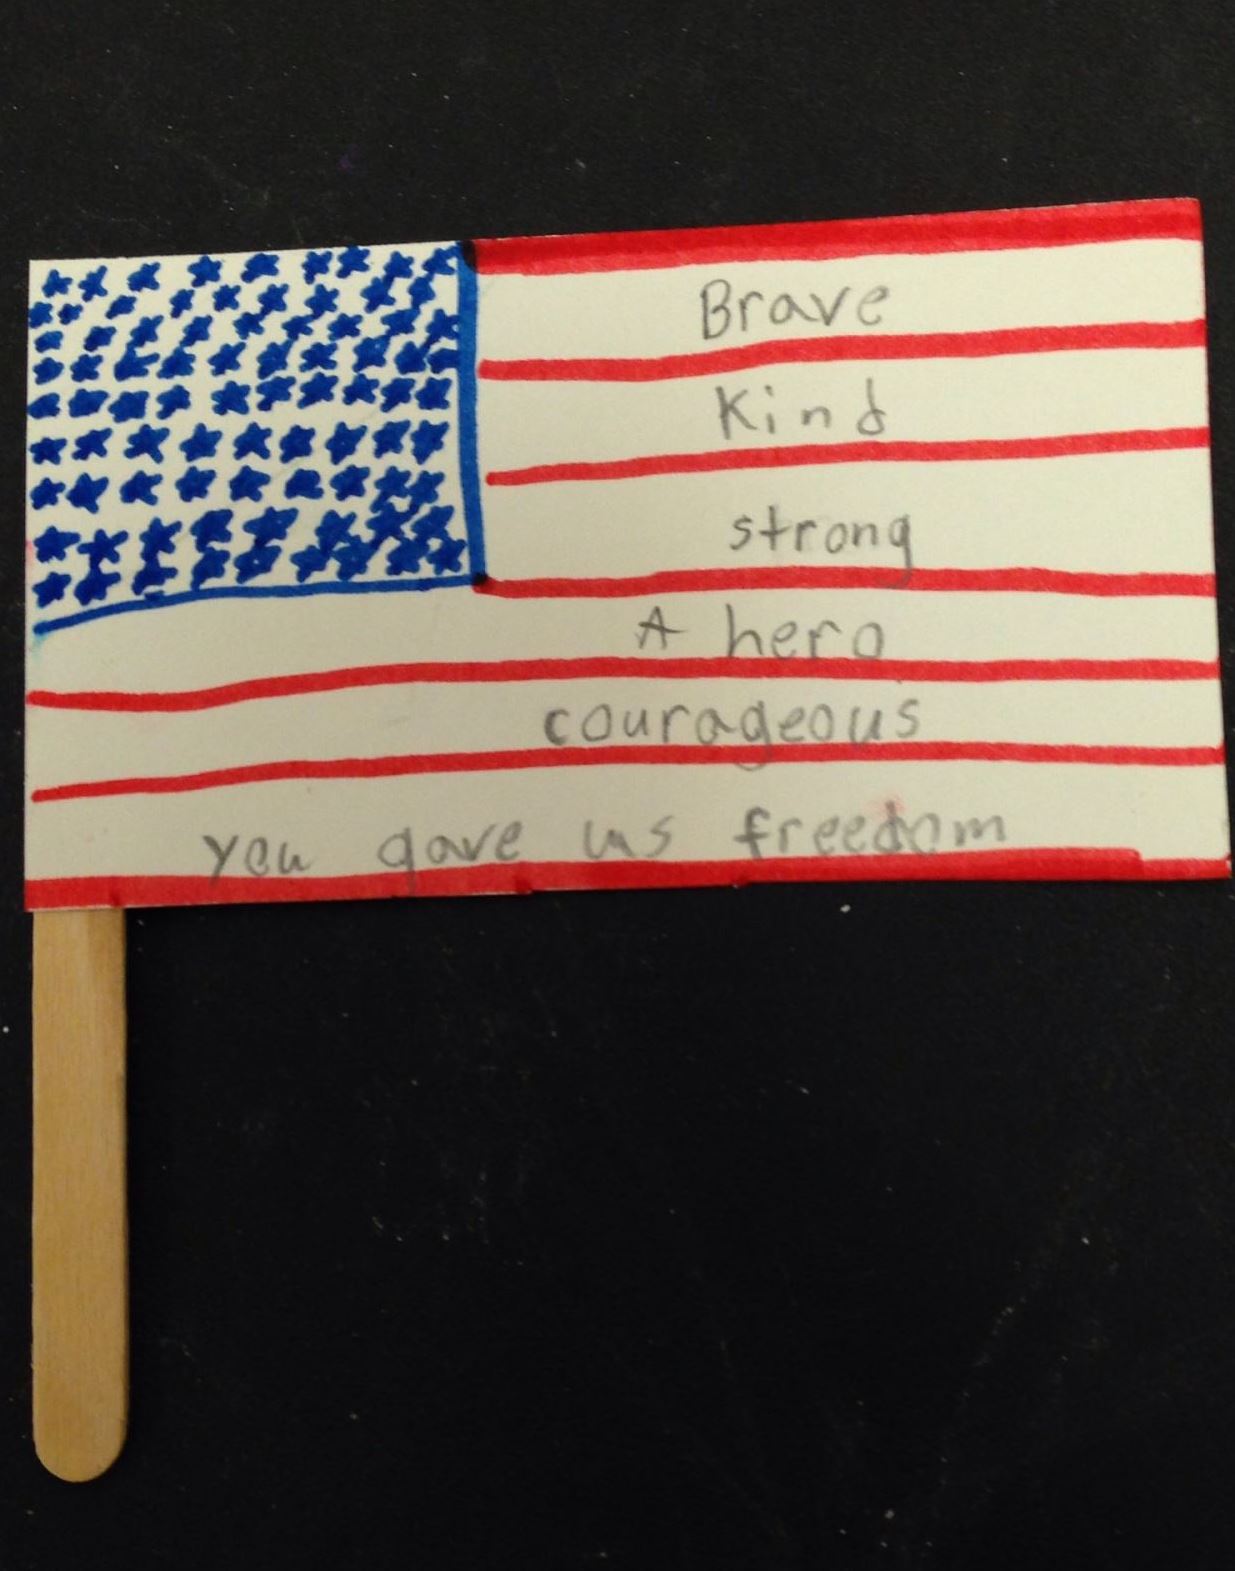 Brave
Kind
strong
A hero
courageous
you gave us freedom